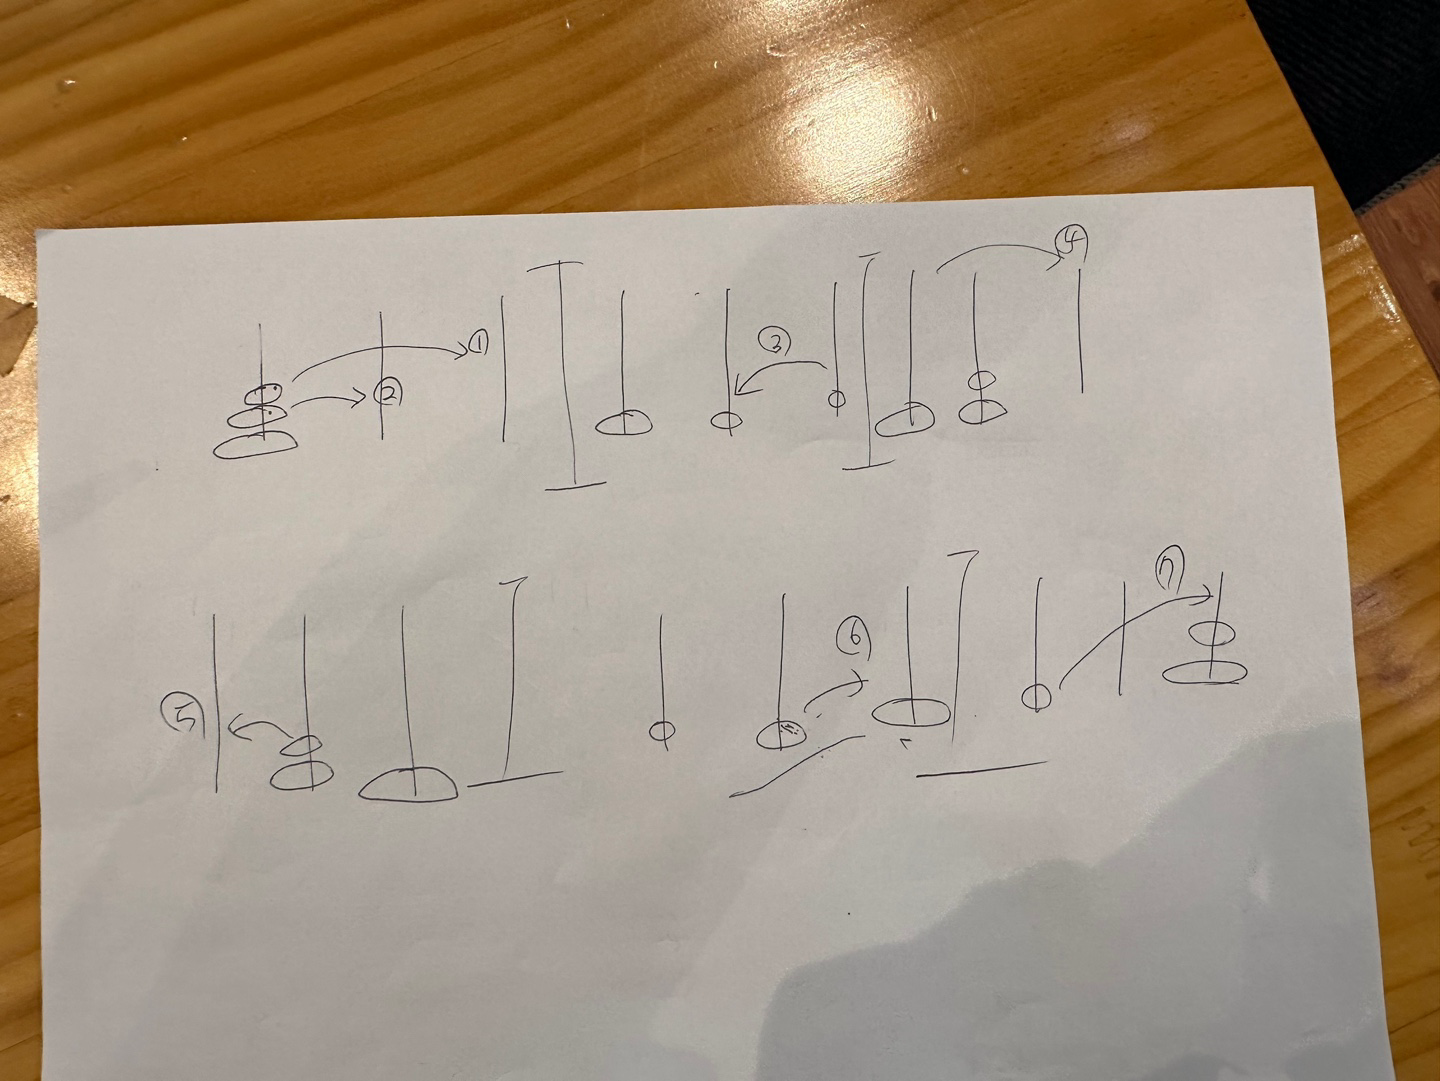 ① ② ③ ④
⑤ ⑥ ⑦